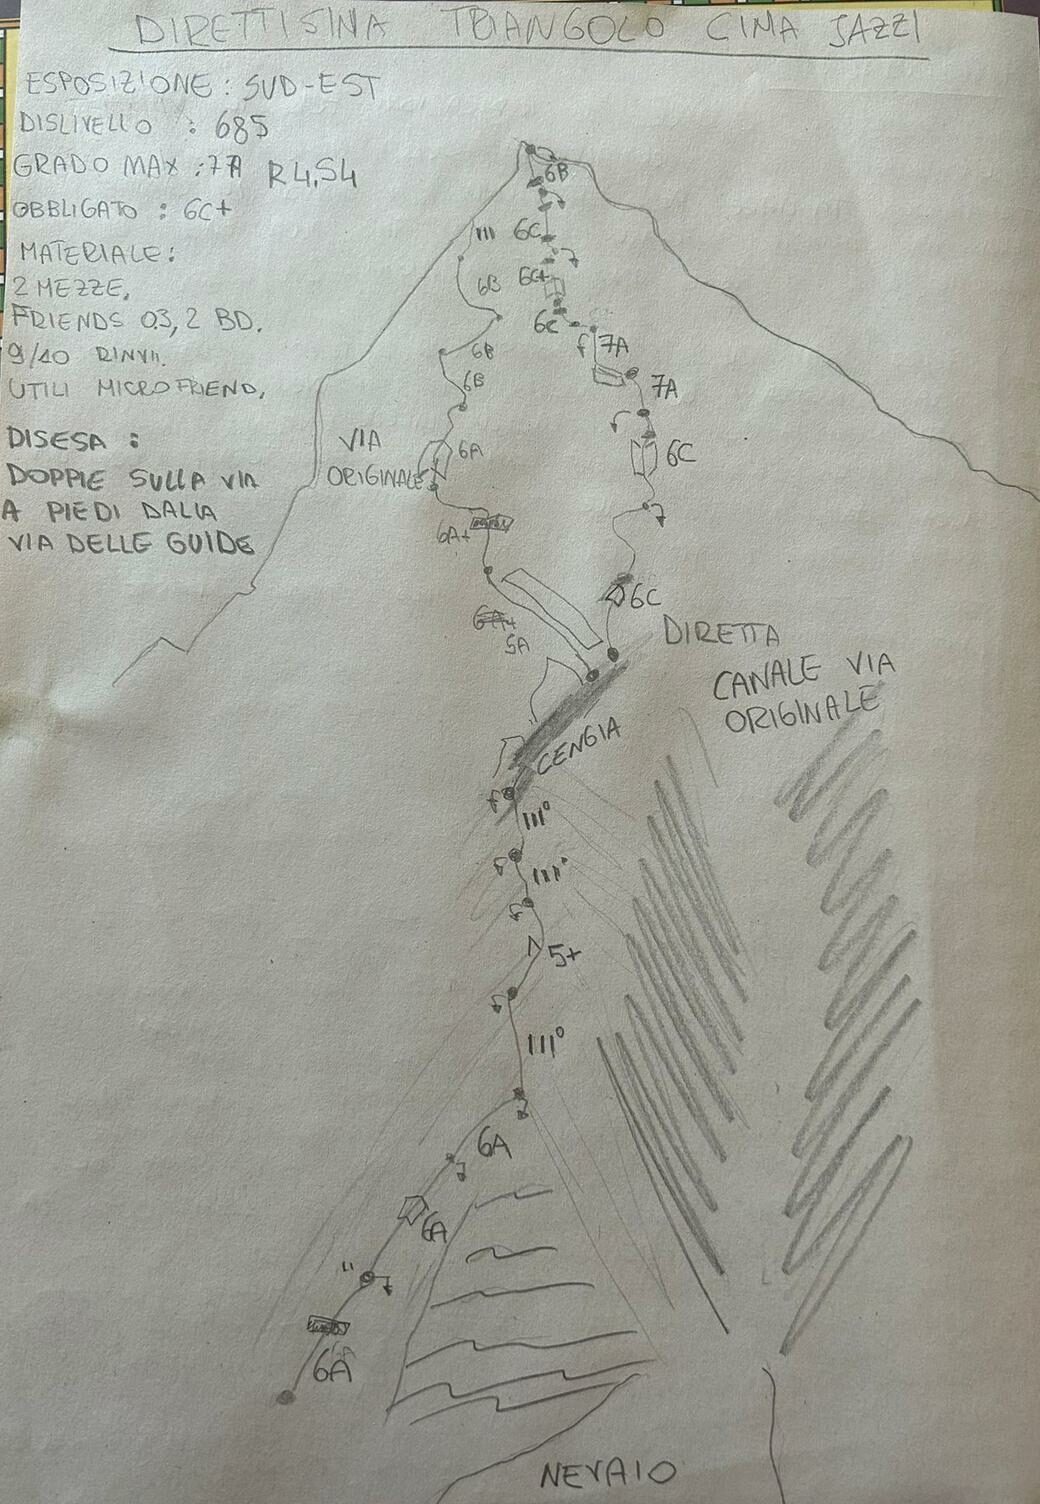 DIRETTISINA TRIANGOLO CIMA JAZZI
ESPOSIZIONE : SUD-EST
DISLIVELLO : 685
GRADO MAX : 7A R4,S4
OBBLIGATO : 6C+
MATERIALE :
2 MEZZE,
FRIENDS 0.3, 2 BD.
9/10 RINVII.
UTILI MICROFRIEND,
DISESA :
DOPPIE SULLA VIA
A PIEDI DALLA
VIA DELLE GUIDE
6B
III
6C
6B
6C+
6C
7A
6B
6B
7A
VIA
ORIGINALE
6A
6C
6A+
6C
5A
DIRETTA
CANALE VIA
ORIGINALE
CENGIA
III°
III°
5+
III°
6A
6A
"
6A
NEVAIO